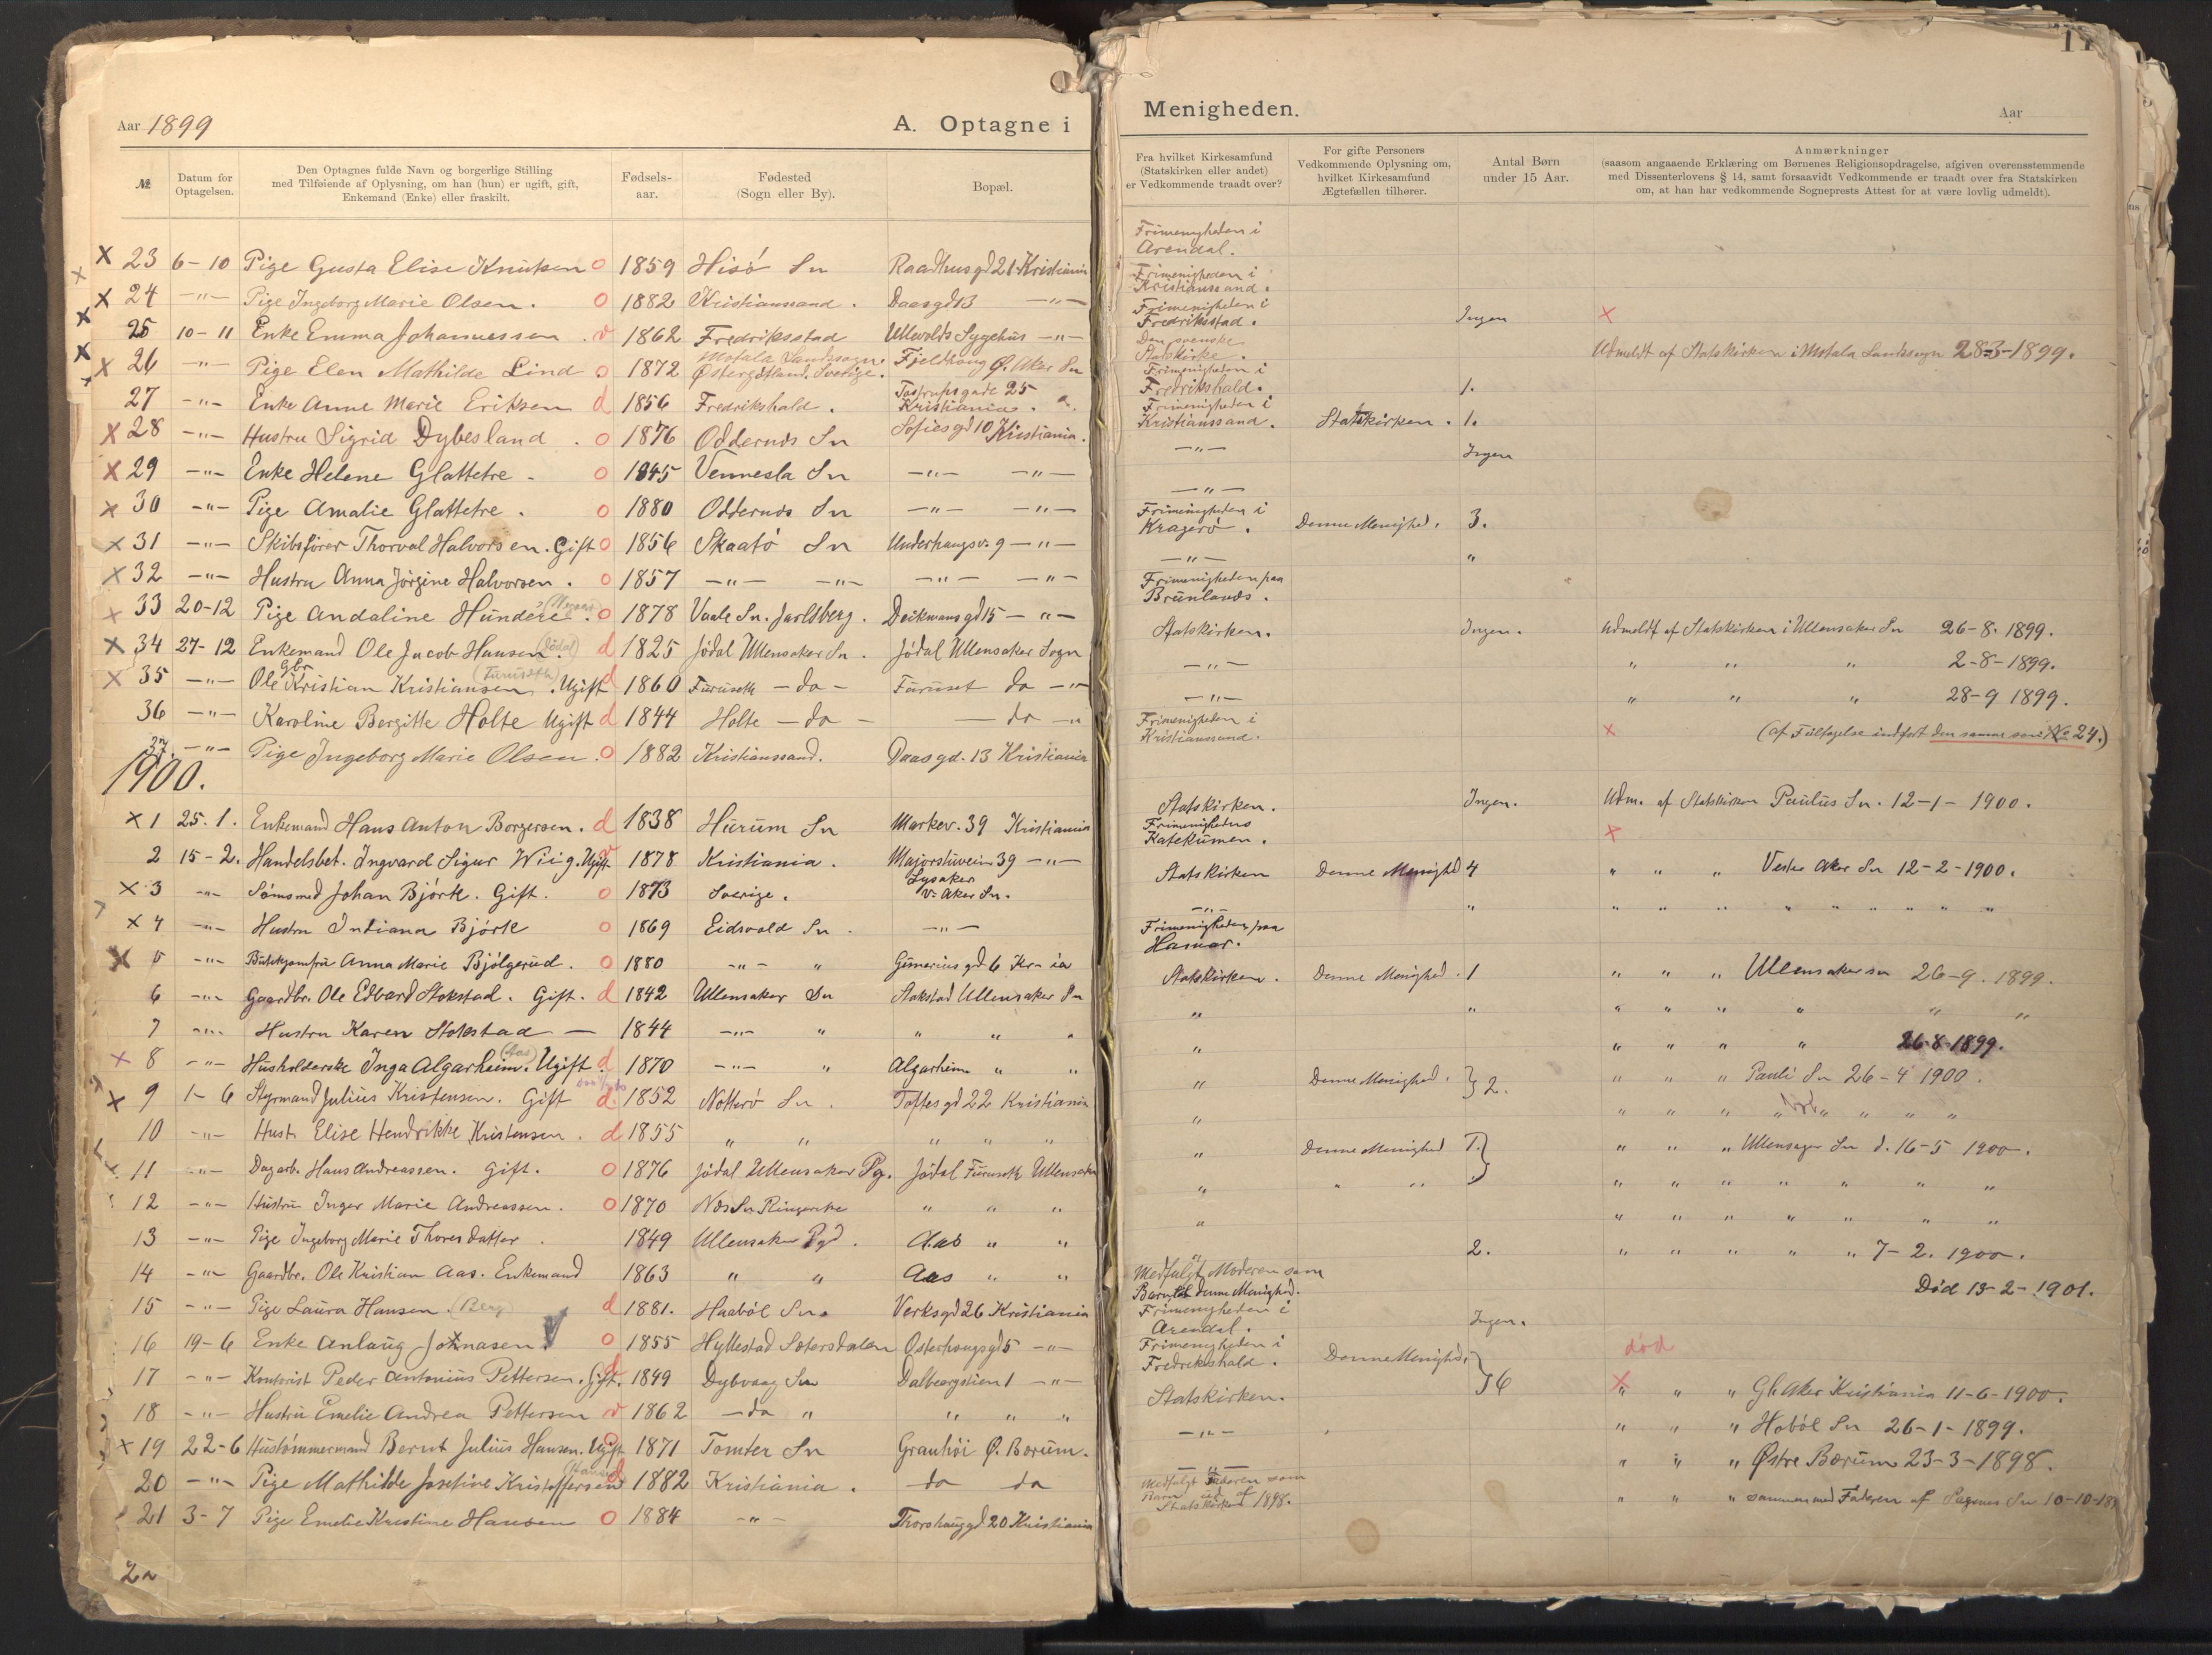 Aar 1899
A. Optagne i
№
Datum for Optagelsen.
Den Optagnes fulde Navn og borgerlige Stilling
med Tilføiende af Oplysning, om han (hun) er ugift, gift,
Enkemand (Enke) eller fraskilt.
Fødsels-
aar.
Fødested
(Sogn eller By).
Bopæl.
X 23 6-10 Pige Gusta Elise Knutsen o 1859 Hisö Sn Raadhusgd 21 Kristiania
X 24 -"- Pige Ingeborg Marie Olsen. o 1882 Kristianssand. Daasgd 13 -"-
X 25 10-11 Enke Emma Johannessen. v 1862 Fredriksstad Ullevolds Sygehus -"-
X 26 -"- Pige Elen Mathilde Lind o 1872 Motala Landssogn Östergötland. Sverige. Fjeldhoug Ø. Aker Sn
27 -"- Enke Anne Marie Eriksen d 1856 Fredrikshald. Tostrupsgade 25 Kristiania.
X 28 -"- Hustru Sigrid Dybesland. o 1876 Oddernes Sn Sofiesgd 10 Kristiania.
X 29 -"- Enke Helene Glattetre - o 1845 Vennesla Sn -"- -"-
X 30 -"- Pige Amalie Glattetre. o 1880 Oddernes Sn -"- -"-
X 31 -"- Skibsfører Thorval Halvorsen. Gift o 1856 Skaatö Sn Underhaugsv. 9 -"-
X 32 -"- Hustru Anna Jörgine Halvorsen. o 1857 -"- -"- -"- -"-
X 33 20-12 Pige Andaline Hundere. o 1878 Vaale Sn. Jarlsberg. Deikmansgd 15 -"-
X 34 27-12 Enkemand Ole Jacob Hansen (Jödal) d 1825 Jödal Ullensaker Sn. Jödal Ullensaker Sogn
X 35 -"- Gbr Ole Kristian Kristiansen (Furuseth). Ugift d 1860 Furuseth -do- Furuset do -"-
36 -"- Karoline Bergitte Holte Ugift d 1844 Holte -do- -do-"
37. -"- Pige Ingeborg Marie Olsen. o 1882 Kristianssand. Daasgd. 13 Kristiania
1900.
X 1 25.1. Enkemand Hans Anton Borgersen. d 1838 Hurum Sn Markev. 39 Kristiania
2 15-2. Handelsbet. Ingvard Sigur Wiig. Ugift v 1878 Kristiania. Majorstuvein 39 -"-
X 3 -"- Sömsmed Johan Björk. Gift. o 1873 Sverige. Lysaker V. Aker Sn.
X 4 -"- Hustru Indiana Björk o 1869 Eidsvold Sn. -"-
X 5 -"- Butikjomfru Anna Marie Bjölgerud. o 1880 -"- " Gimeriusgd 6 Kr-ia
6 -"- Gaardbr. Ole Edvard Stokstad. Gift. d 1842 Ullensaker Sn Stokstad Ullensaker Sn
7 -"- Hustru Karen Stokstad — 1844 -"- " " " "
X 8 -"- Husholderske Inga Algarheim. (Aas) Ugift d 1870 -"- " Algarheim " "
X 9 1-6 Styrmand Julius Kristensen. Gift d. 1852 Nötterö Sn. Toftesgd 22 Kristiania
10 -"- Hust. Elise Hendrikke Kristensen. d 1855 " " " " "
11 -"- Dagarb. Hans Andreassen. Gift. o 1876 Jödal Ullensaker Pg. Jödal Furuseth Ullensaker
12 -"- Hustru Inger Marie Andreassen. o 1870 Næs Sn Ringerike " " "
13 -"- Pige Ingeborg Marie Thoresdatter. 1849 Ullensaker Pgd. Aas " "
14 -"- Gaardbr. Ole Kristian Aas. Enkemand 1863 " " Aas " "
15 -"- Pige Laura Hansen. (Berg) d 1881. Haaböl Sn. Verksgd 26 Kristiania
16 19-6 Enke Anlaug Jonasen. o 1855 Hyllestad Sætersdalen Osterhaugsgd 5 -"-
17 -"- Kontorist Peder Antonius Pettersen. Gift. 1849 Dybvaag Sn Dalbergstien 1 -"-
18 -"- Hustru Emelie Andrea Pettersen v 1862 -do " " " "
X 19 22-6 Hustömmermand Bernt Julius Hansen. Ugift o 1871 Tomter Sn Granhöi Ø. Bærum.
20 -"- Pige Mathilde Josefine Kristoffersen d 1882 Kristiania. do do
21 3-7 Pige Emelie Kristine Hansen o 1884 -"- Thorshauggd 20 Kristiania
Menigheden.
Aar
Fra hvilket Kirkesamfund
(Statskirken eller andet)
er Vedkommende traadt over?
For gifte Personers
Vedkommende Oplysning om,
hvilket Kirkesamfund
Ægtefællen tilhører.
Antal Børn
under 15 Aar.
Anmærkninger
(saasom angaaende Erklæring om Børnenes Religionsopdragelse, afgiven overensstemmende
med Dissenterlovens § 14, samt forsaavidt Vedkommende er traadt over fra Statskirken
om, at han har vedkommende Sogneprests Attest for at være lovlig udmeldt).
Frimenigheden i
Arendal.
Frimenigheden i
Kristianssand.
Frimenigheden i
Fredriksstad. Ingen X
Den svenske
Statskirke. Udmeldt af Statskirken i Motala Landssogn 28-3-1899.
Frimenigheden i
Fredrikshald. 1.
Frimenigheden i
Kristianssand. Statskirken. 1.
-"- Ingen
-"-
Frimenigheden i
Kragerö. Denne Menighed. 3.
-"- "
Frimenigheden paa
Brunlands.
Statskirken. Ingen. Udmeldt af Statskirken i Ullensaker Sn 26-8-1899.
-"- " " " 2-8-1899.
-"- " " " 28-9 1899.
Frimenigheden i
Kristianssand. X (af Fültagelse indfört den samme som No 24.)
Statskirken. Ingen. Udm. af Statskirken Paulus Sn. 12-1-1900.
Frimenigheds
Katekumen. X
Statskirken Denne Menighed 4 " " " Vestre Aker Sn 12-2-1900.
-"- " " " " " " " " " "
Frimenigheden paa
Hamar.
Statskirken. Denne Menighed. 1 " " " Ullensaker sn 26-9. 1899.
" " " " " " " "
" " " " " 26-8-1899.
" Denne Menighed. } 2. " " " Pauli Sn 26-4 1900.
" " " " " " " "
" Denne Menighed 1. } " " " Ullensager Sn d. 16-5 1900.
" " " " " " " " " "
" " " " " " " "
" 2. " " " " " 7-2. 1900.
Medfulgt Moderen som
Barn denne Menighed. Död 13-2-1901.
Frimenigheden i
Arendal. Ingen.
Frimenigheden i
Fredrikshald. Denne Menighed. } 6 död
Statskirken. X " " " Gl. Aker Kristiania 11-6-1900.
-"- " " " Hoböl Sn 26-1-1899.
-"- " " " Østre Bærum 23-3-1898.
Medfulgt Faderen som
Barn ud af
Statskirken 1898. " " " sammen med Faderen af Sn 10-10-189